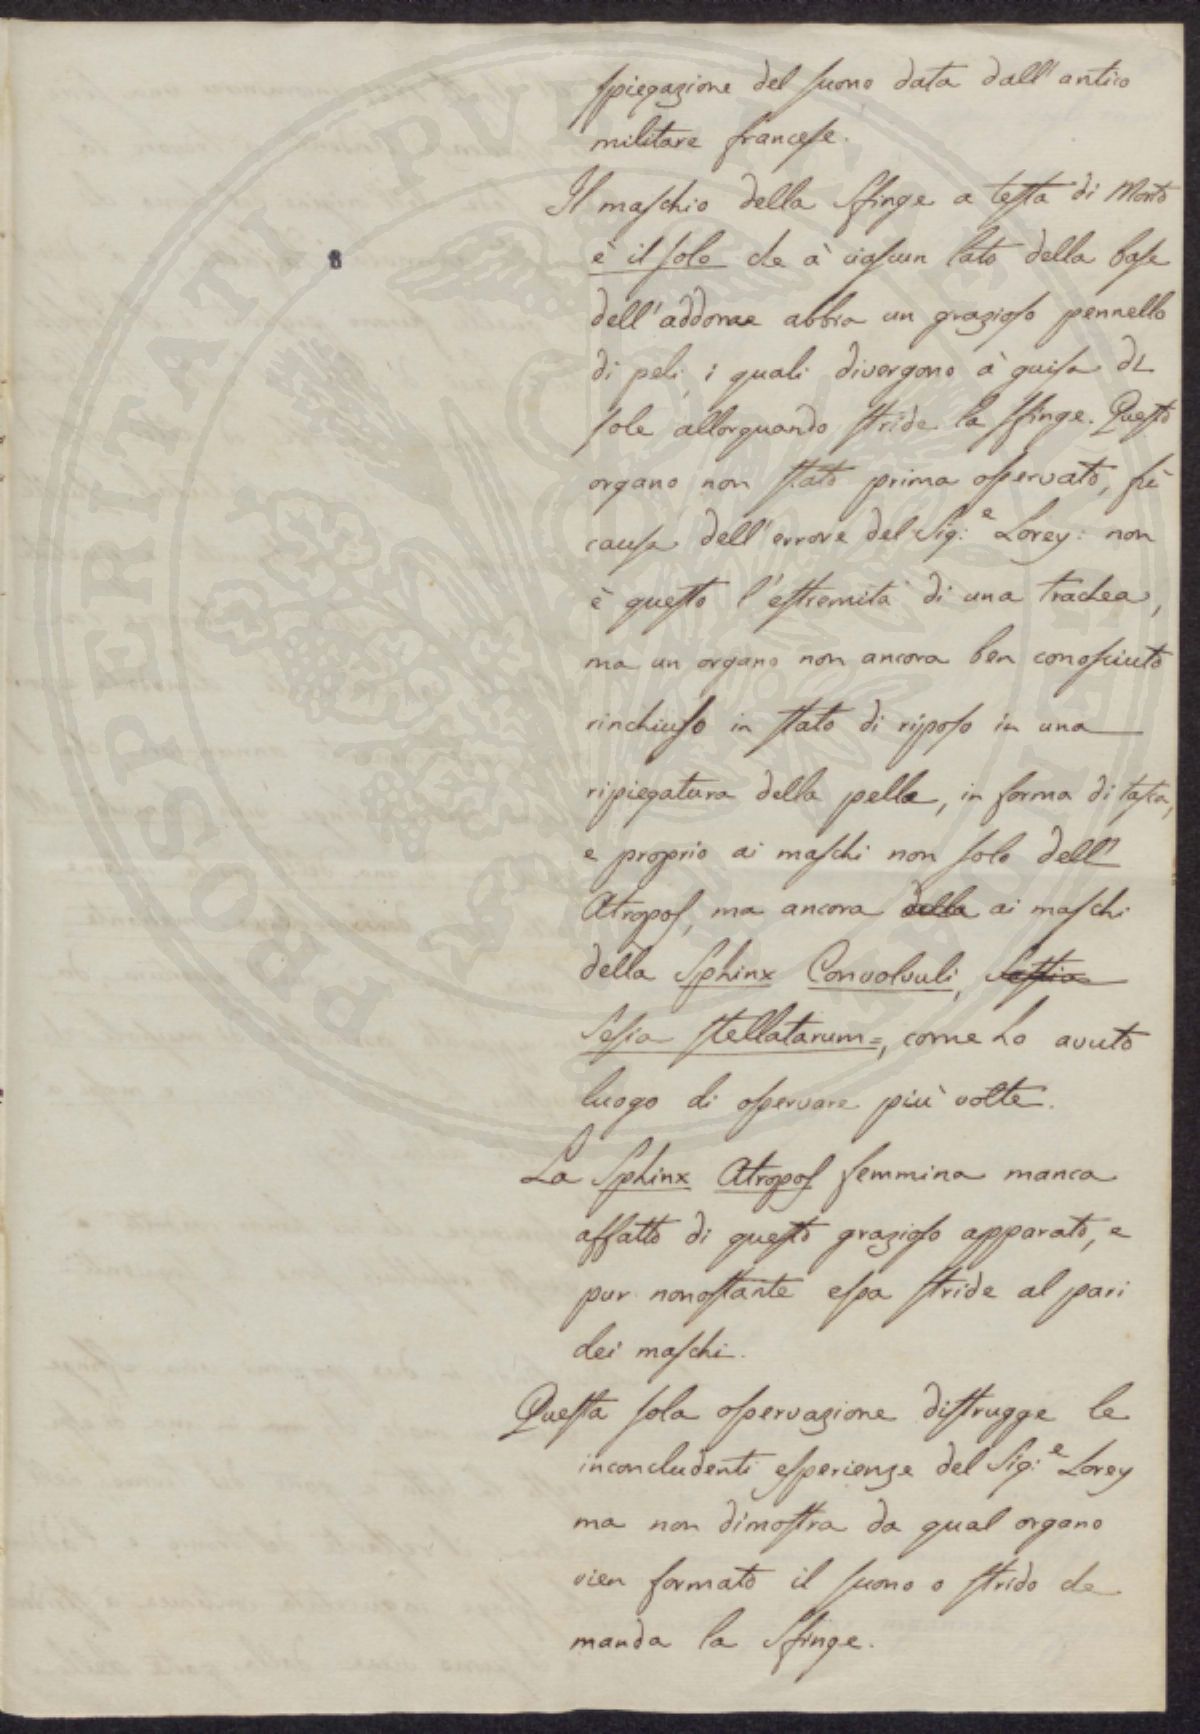 spiegazione del suono data dall'antico
militare francese.
Il maschio della Sfinge a testa di Morto
è il solo che à ciascun lato della base
dell'addome abbia un grazioso pennello
di peli, i quali divergono à guisa di
sole allorquando stride la sfinge. Questo
organo non stato prima osservato, fù
causa dell'errore del Sig:e Lorey: non
è questo l'estremità di una trachea,
ma un organo non ancora ben conosciuto
rinchiuso in stato di riposo in una
ripiegatura della pelle, in forma di tasca,
e proprio ai maschi non solo dell'
Atropos, ma ancora della ai maschi
della Sphinx Convolvuli,
Sesia stellatarum=, come ho avuto
luogo di osservare più volte.
La Sphinx Atropos femmina manca
affatto di questo grazioso apparato, e
pur nonostante essa stride al pari
dei maschi.
Questa sola osservazione distrugge le
inconcludenti esperienze del Sig:e Lorey
ma non dimostra da qual organo
vien formato il suono o strido che
manda la Sfinge.
PROSPERITATI PUBLICAE